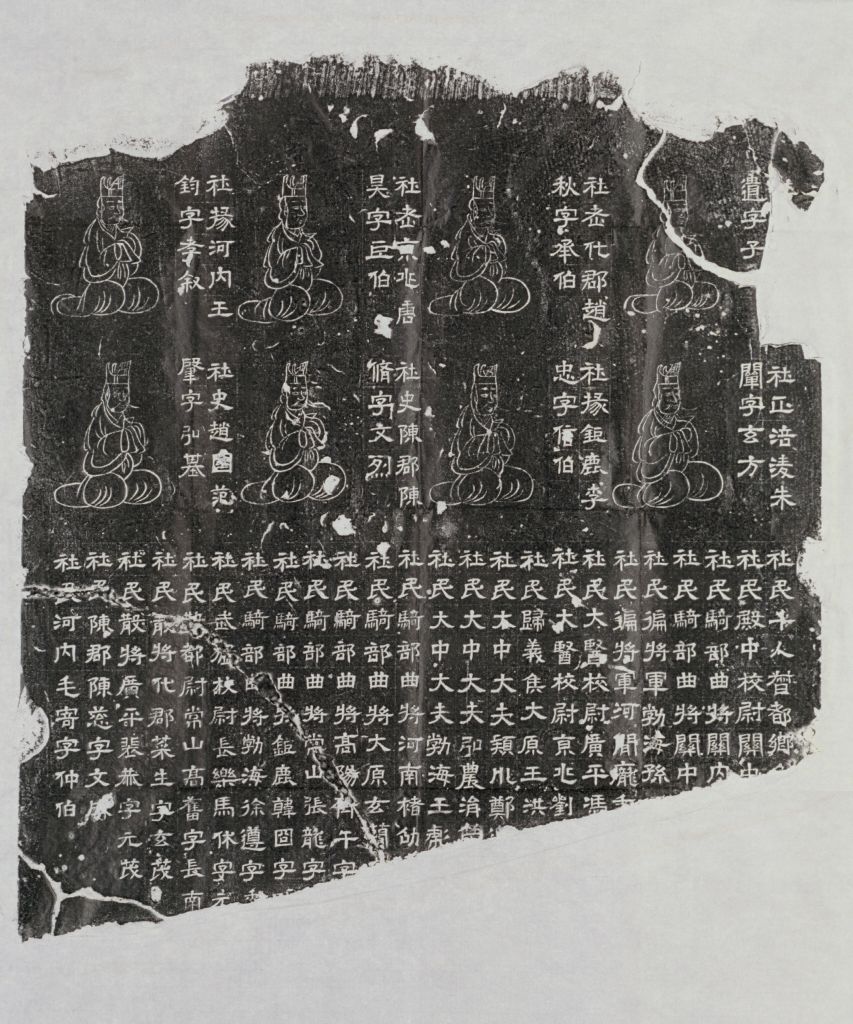 遺字子
社老代郡趙
秋字承伯
社老京兆唐
昊字巨伯
社掾河内王
鈞字孝叙
社正涪淩朱
闡字玄方
社掾鉅鹿李
忠字信伯
社史陳郡陳
脩字文烈
社史趙國范
肇字弘基
社民十人督都鄉
社民殿中校尉關中
社民騎部曲將關内
社民騎部曲將關中
社民偏將軍勃海孫
社民偏將軍河間龐
社民大醫校尉廣平馮
社民大醫校尉京兆劉
社民歸義侯大原王洪
社民大中大夫潁川鄭
社民大中大夫弘農
社民大中大夫勃海王
社民騎部曲將河南褚劭
社民騎部曲將大原玄
社民騎部曲將高陽齊午字
社民騎部曲將常山張龍字
社民騎部曲將鉅鹿韓囧字
社民騎部曲將勃海徐遵字
社民武猛校尉長樂馬休字元
社民騎都尉常山高舊字長南
社民散將代郡萊生字玄茂
社民散將廣平裴恭字元茂
社民陳郡陳慈字文
社民河内毛寄字仲伯